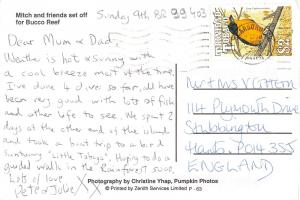 Mitch and friends set off
for Bucco Reef
Sunday 9th
Dear Mum & Dad,
Weather is hot & sunny with
a cool breeze most of the time.
I've done 4 dives so far, all have
been very good with lots of fish
and other life to see. We spent 2
days at the other end of the island
and took a boat trip to a bird
sanctuary "Little Tobago". Hoping to do a
guided walk in the Rainforest soon.
Lots of love
Peter XX
114 Plymouth Drive
Stubbington
Hants PO14
ENGLAND
Photography by Christine Yhap, Pumpkin Photos
© Printed by Zenith Services Limited P - 63